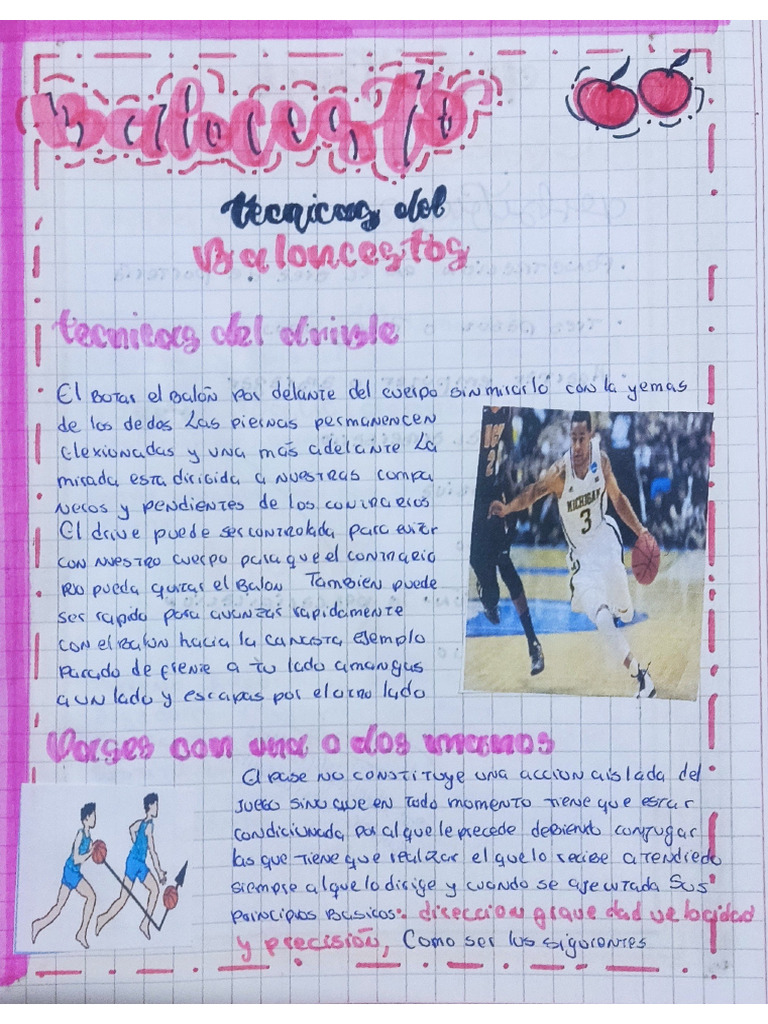 Baloncesto
tecnicas del
Baloncestos
tecnicas del drivle
El Botar el Balón por delante del cuerpo sin mirarlo con la yemas
de los dedos Las piernas permanencen
flexionadas y una más adelante La
mirada esta dirigida a nuestras compa
ñeros y pendientes de los contrarios
El drive puede ser controlada para evitar
con nuestro cuerpo para que el contrario
no pueda quitar el Balon Tambien puede
ser rapido para avanzar rapidamente
con el Balon hacia la canasta, Ejemplo
parado de frente a tu lado amangas
a un lado y escapas por el otro lado
MICHIGAN
3
2
Parses con una o dos manos
El pase no constituye una accion aislada del
juego sino que en todo momento tiene que estar
condicionada por al que le precede debiendo conjugar
las que tiene que realizar el que lo recibe atendiedo
siempre al que lo dirige y cuando se ajecutada sus
principios Basicos: direccion gravedad velocidad
y precisión, Como ser los sigorentes